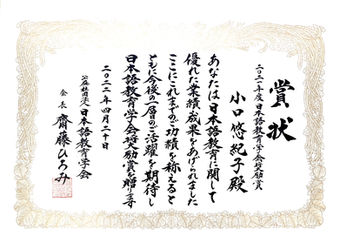 賞状
二〇二二年度日本語教育学会奨励賞
小口悠紀子殿
あなたは日本語教育に関して
優れた業績成果をあげられました
ここにこれまでのご功績を称えると
ともに今後の一層のご活躍を期待し
日本語教育学会奨励賞を贈ります
二〇二三年四月二十日
公益社団法人日本語教育学会
会長 齋藤ひろみ